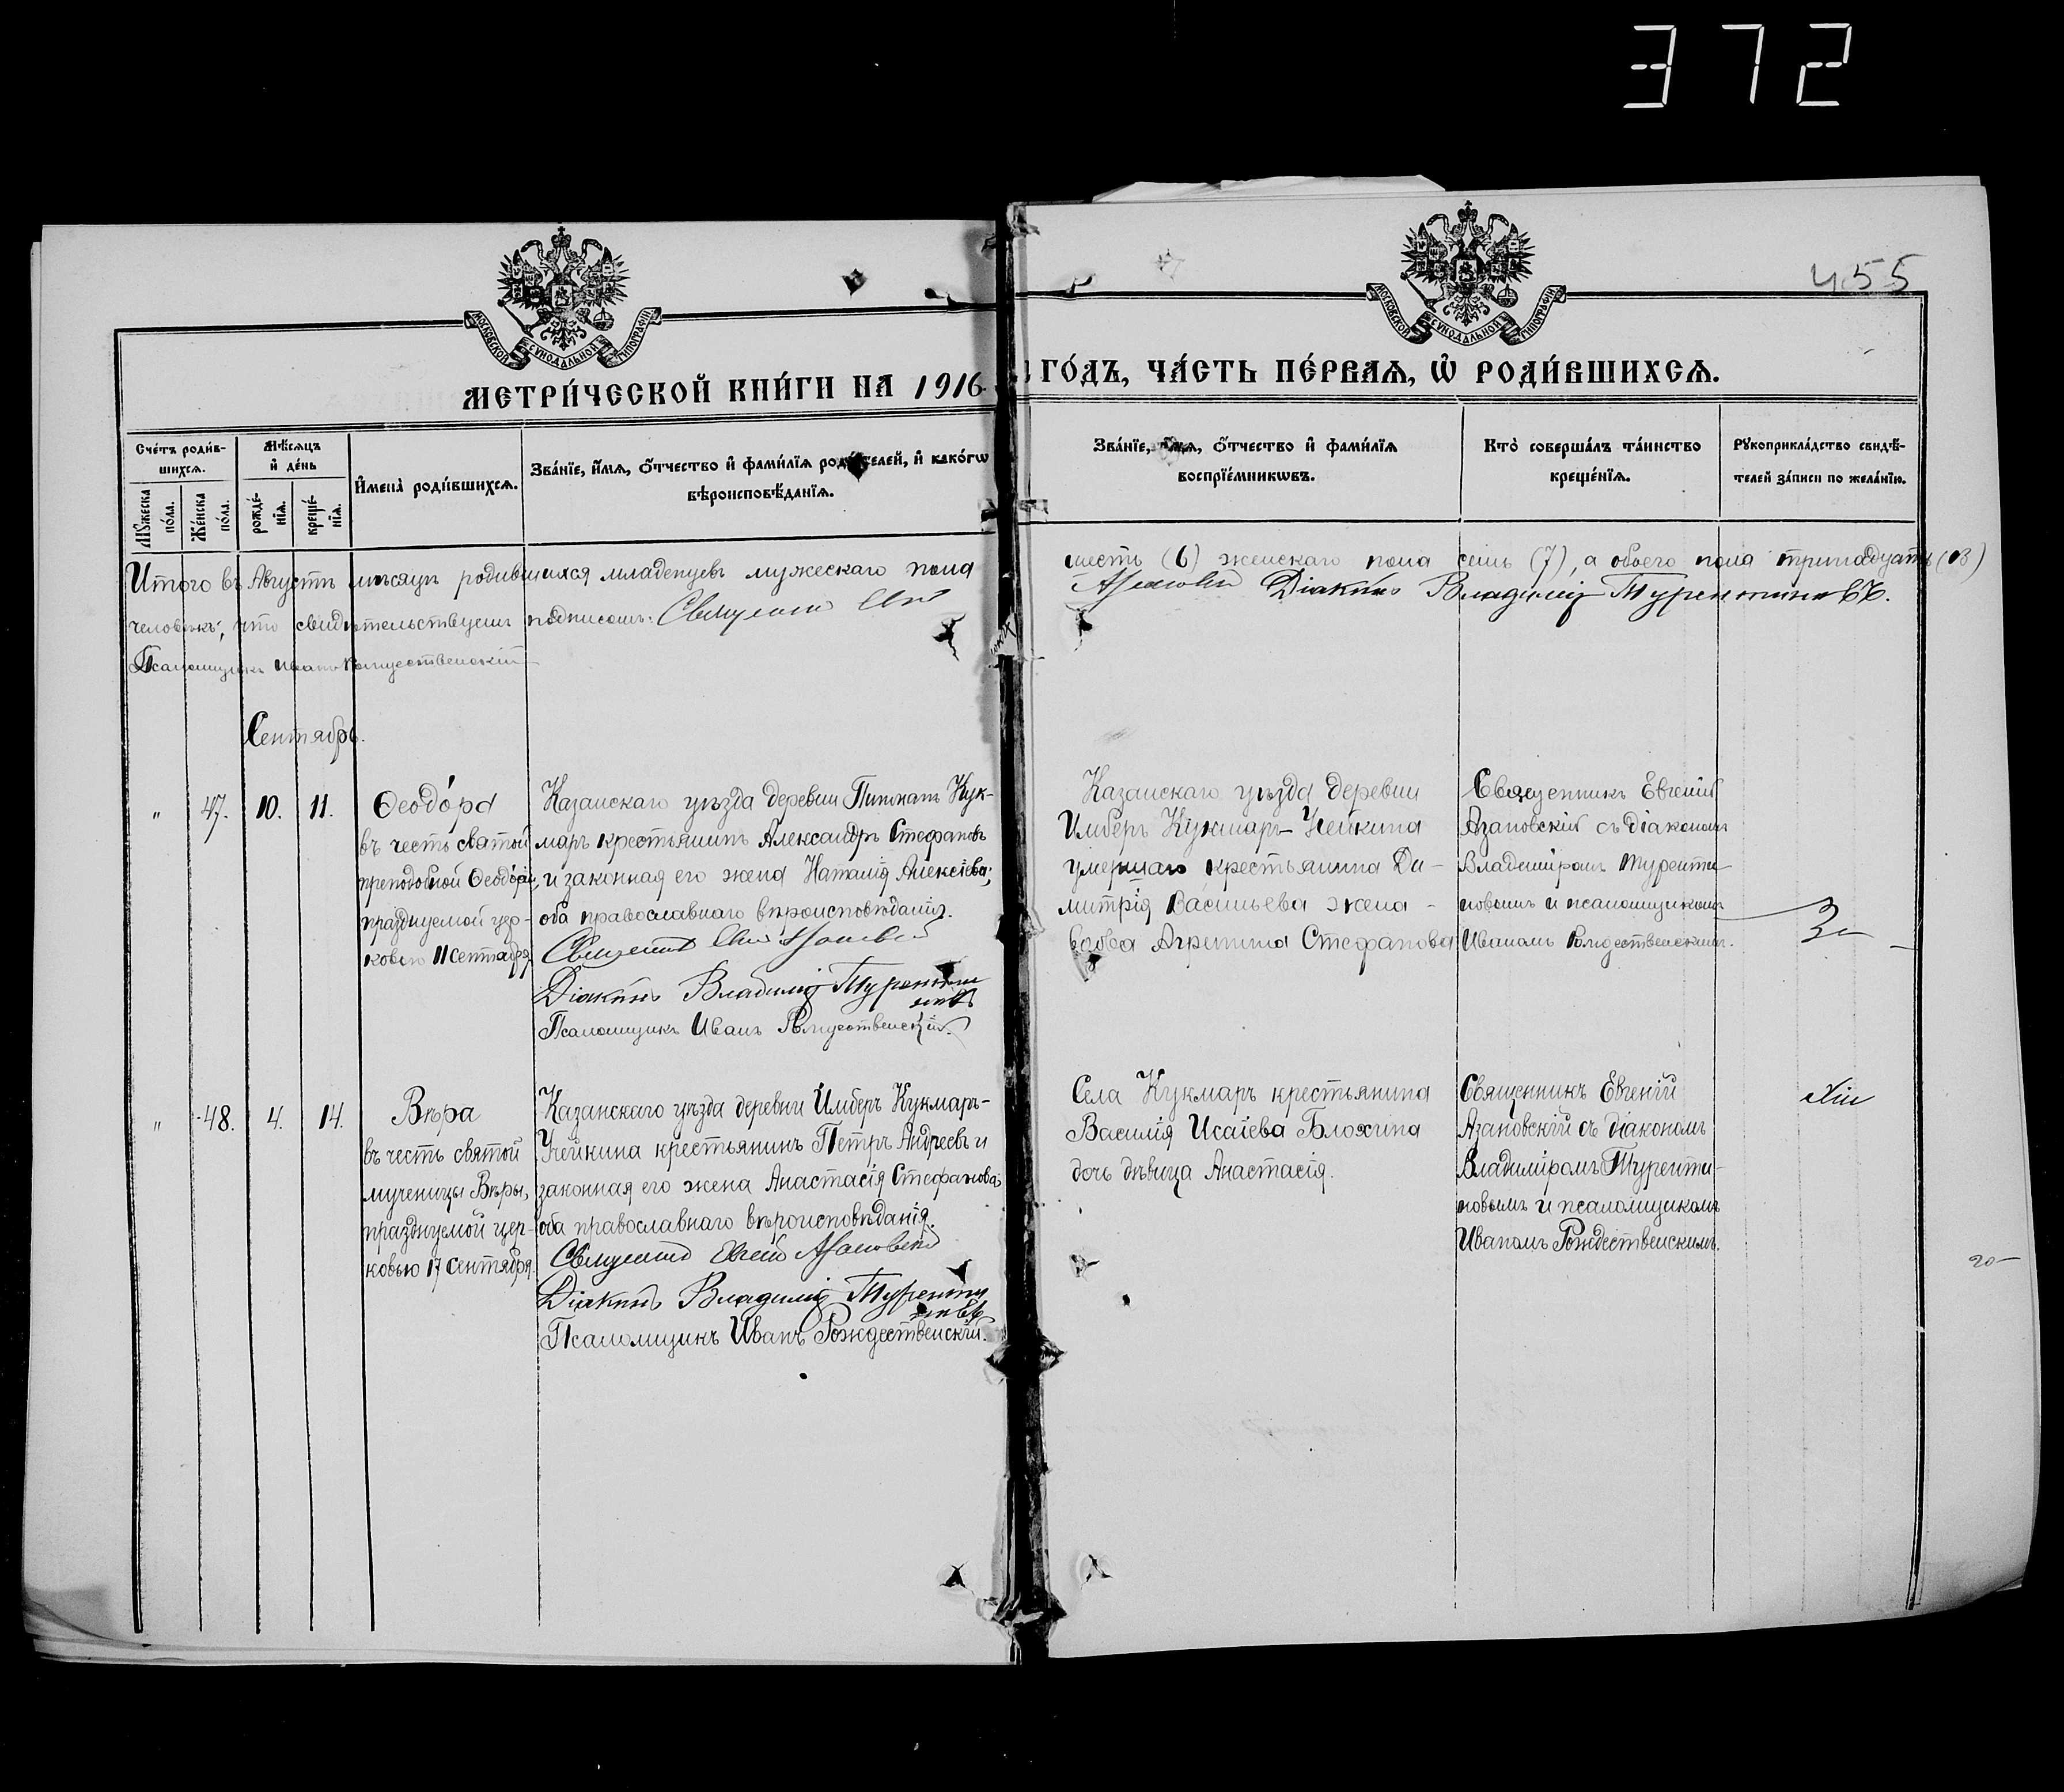 372
455
МОСКОВСКОЙ СѴНОДАЛЬНОЙ ТИПОГРАФІИ
МОСКОВСКОЙ СѴНОДАЛЬНОЙ ТИПОГРАФІИ
МЕТРИ́ЧЕСКОЙ КНИ́ГИ НА 1916
ГО́ДЪ, ЧА́СТЬ ПЕ́РВАЯ, Ѡ҆ РОДИ́ВШИХСЯ.
Сче́тъ роди́в-
шихся.
Мѣ́сяцъ
и҆ де́нь
Мꙋ́жеска
по́ла.
Же́нска
по́ла.
рожде́-
нїя.
креще́-
нїя.
И҆мена̀ роди́вшихся.
Зва́нїе, и҆́мя, ѻ҆́тчество и҆ фами́лїя роди́телей, и҆ како́гѡ
вѣроисповѣ́данїя.
Зва́нїе, и҆́мя, ѻ҆́тчество и҆ фами́лїя
воспрїе́мникѡвъ.
Кто̀ соверша́лъ та́инство
креще́нїя.
Рꙋкоприкла́дство свидѣ́-
телей за́писи по жела́нїю.
Итого въ Августѣ мѣсяцѣ родившихся младенцевъ мужескаго пола
шесть (6) женскаго пола семь (7), а обоего пола тринадцать (13)
человѣкъ, что свидѣтельствуемъ подписомъ: Священникъ Евг
Азановскій Діаконъ Владиміръ Турентиновъ.
Псаломщикъ Иванъ Рождественскій
Сентябрь.
" 47. 10. 11.
Ѳеодо́ра
въ честь святой
преподобной Ѳеодоры,
празднуемой цер-
ковью 11 Сентября
Казанскаго уѣзда деревни Починать Кук-
маръ крестьянинъ Александръ Стефановъ
и законная его жена Наталія Алексіева;
оба православнаго вѣроисповѣданія.
Священникъ Евг Азановскій
Діаконъ Владиміръ Туренти
новъ
Псаломщикъ Иванъ Рождественскій.
Казанскаго уѣзда деревни
Имберъ Кукмаръ-Учейкина
умершаго крестьянина Ди-
митрія Васильева жена -
вдова Агрипина Стефанова
Священникъ Евгеній
Азановскій съ діакономъ
Владиміромъ Туренти-
новымъ и псаломщикомъ
Иваномъ Рождественскимъ.
" 48. 4. 14.
Вѣра
въ честь святой
мученицы Вѣры,
празднуемой цер-
ковью 17 сентября
Казанскаго уѣзда деревни Имберъ Кукмаръ-
Учейкина крестьянинъ Петръ Андреевъ и
законная его жена Анастасія Стефанова;
оба православнаго вѣроисповѣданія.
Священникъ Евгеній Азановскій
Діаконъ Владиміръ Туренти
новъ
Псаломщикъ Иванъ Рождественскій.
Села Кукмаръ крестьянина
Василія Исаіева Блохина
дочь дѣвица Анастасія.
Священникъ Евгеній
Азановскій съ діакономъ
Владиміромъ Туренти-
новымъ и псаломщикомъ
Иваномъ Рождественскимъ.
20-